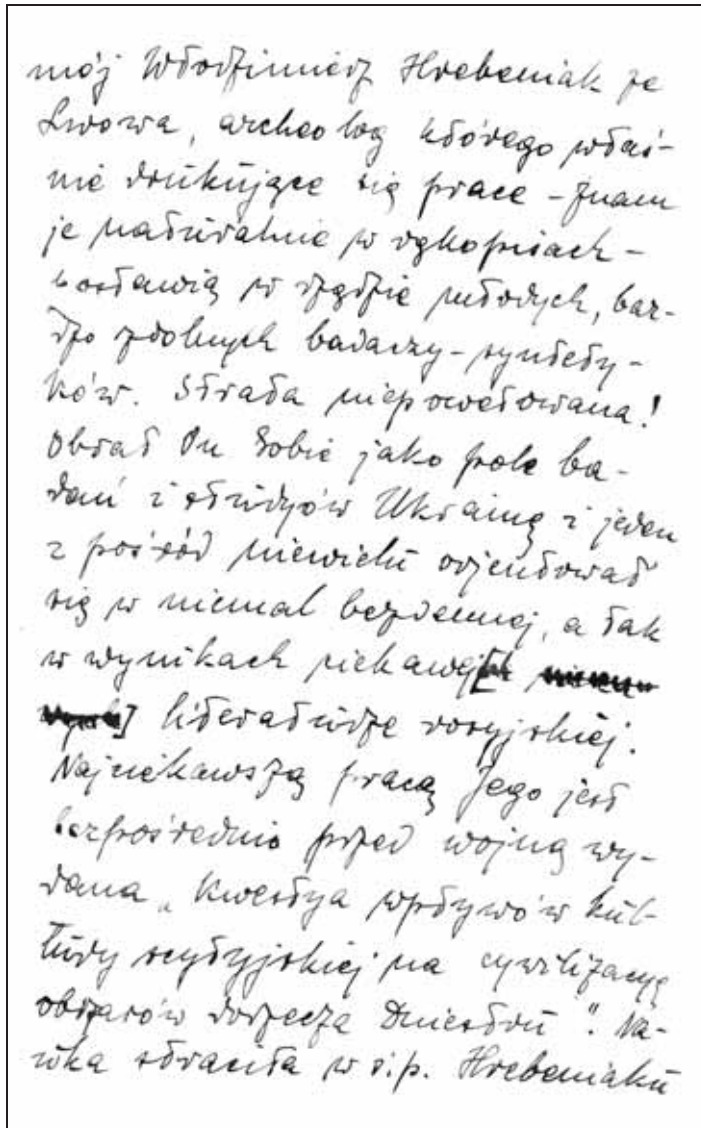 mój Włodzimierz Hrebeniak ze
Lwowa, archeolog którego właś-
nie drukujące się prace – znam
je naturalnie w rękopisach –
postawią w rzędzie młodych, bar-
dzo zdolnych badaczy – syntety-
ków. Strata niepowetowana!
Obrał On Sobie jako pole ba-
dań i studyów Ukrainę i jeden
z pośród niewielu orjentował
się w niemal bezdennej, a tak
w wynikach ciekawej
literaturze rosyjskiej.
Najciekawszą pracą Jego jest
bezpośrednio przed wojną wy-
dana „Kwestya wpływów kul-
tury scytyjskiej na cywilizacyę
obszarów dorzecza Dniestru". Na-
uka straciła w ś.p. Hrebeniaku